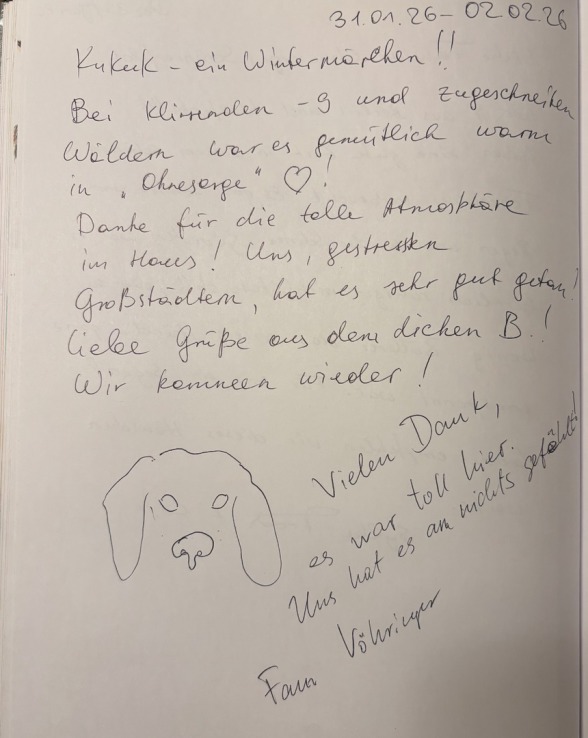 31.01.26 – 02.02.26
Kukuk – ein Wintermärchen!!
Bei klirrenden -9 und zugeschneiten
Wäldern war es gemütlich warm
in „Ohnesorge" ♡!
Danke für die tolle Atmosphäre
im Haus! Uns, gestressten
Großstädtern, hat es sehr gut getan!
Liebe Grüße aus dem dicken B.!
Wir kommen wieder!
Vielen Dank,
es war toll hier.
Uns hat es an nichts gefehlt!
Fam Vöhringer